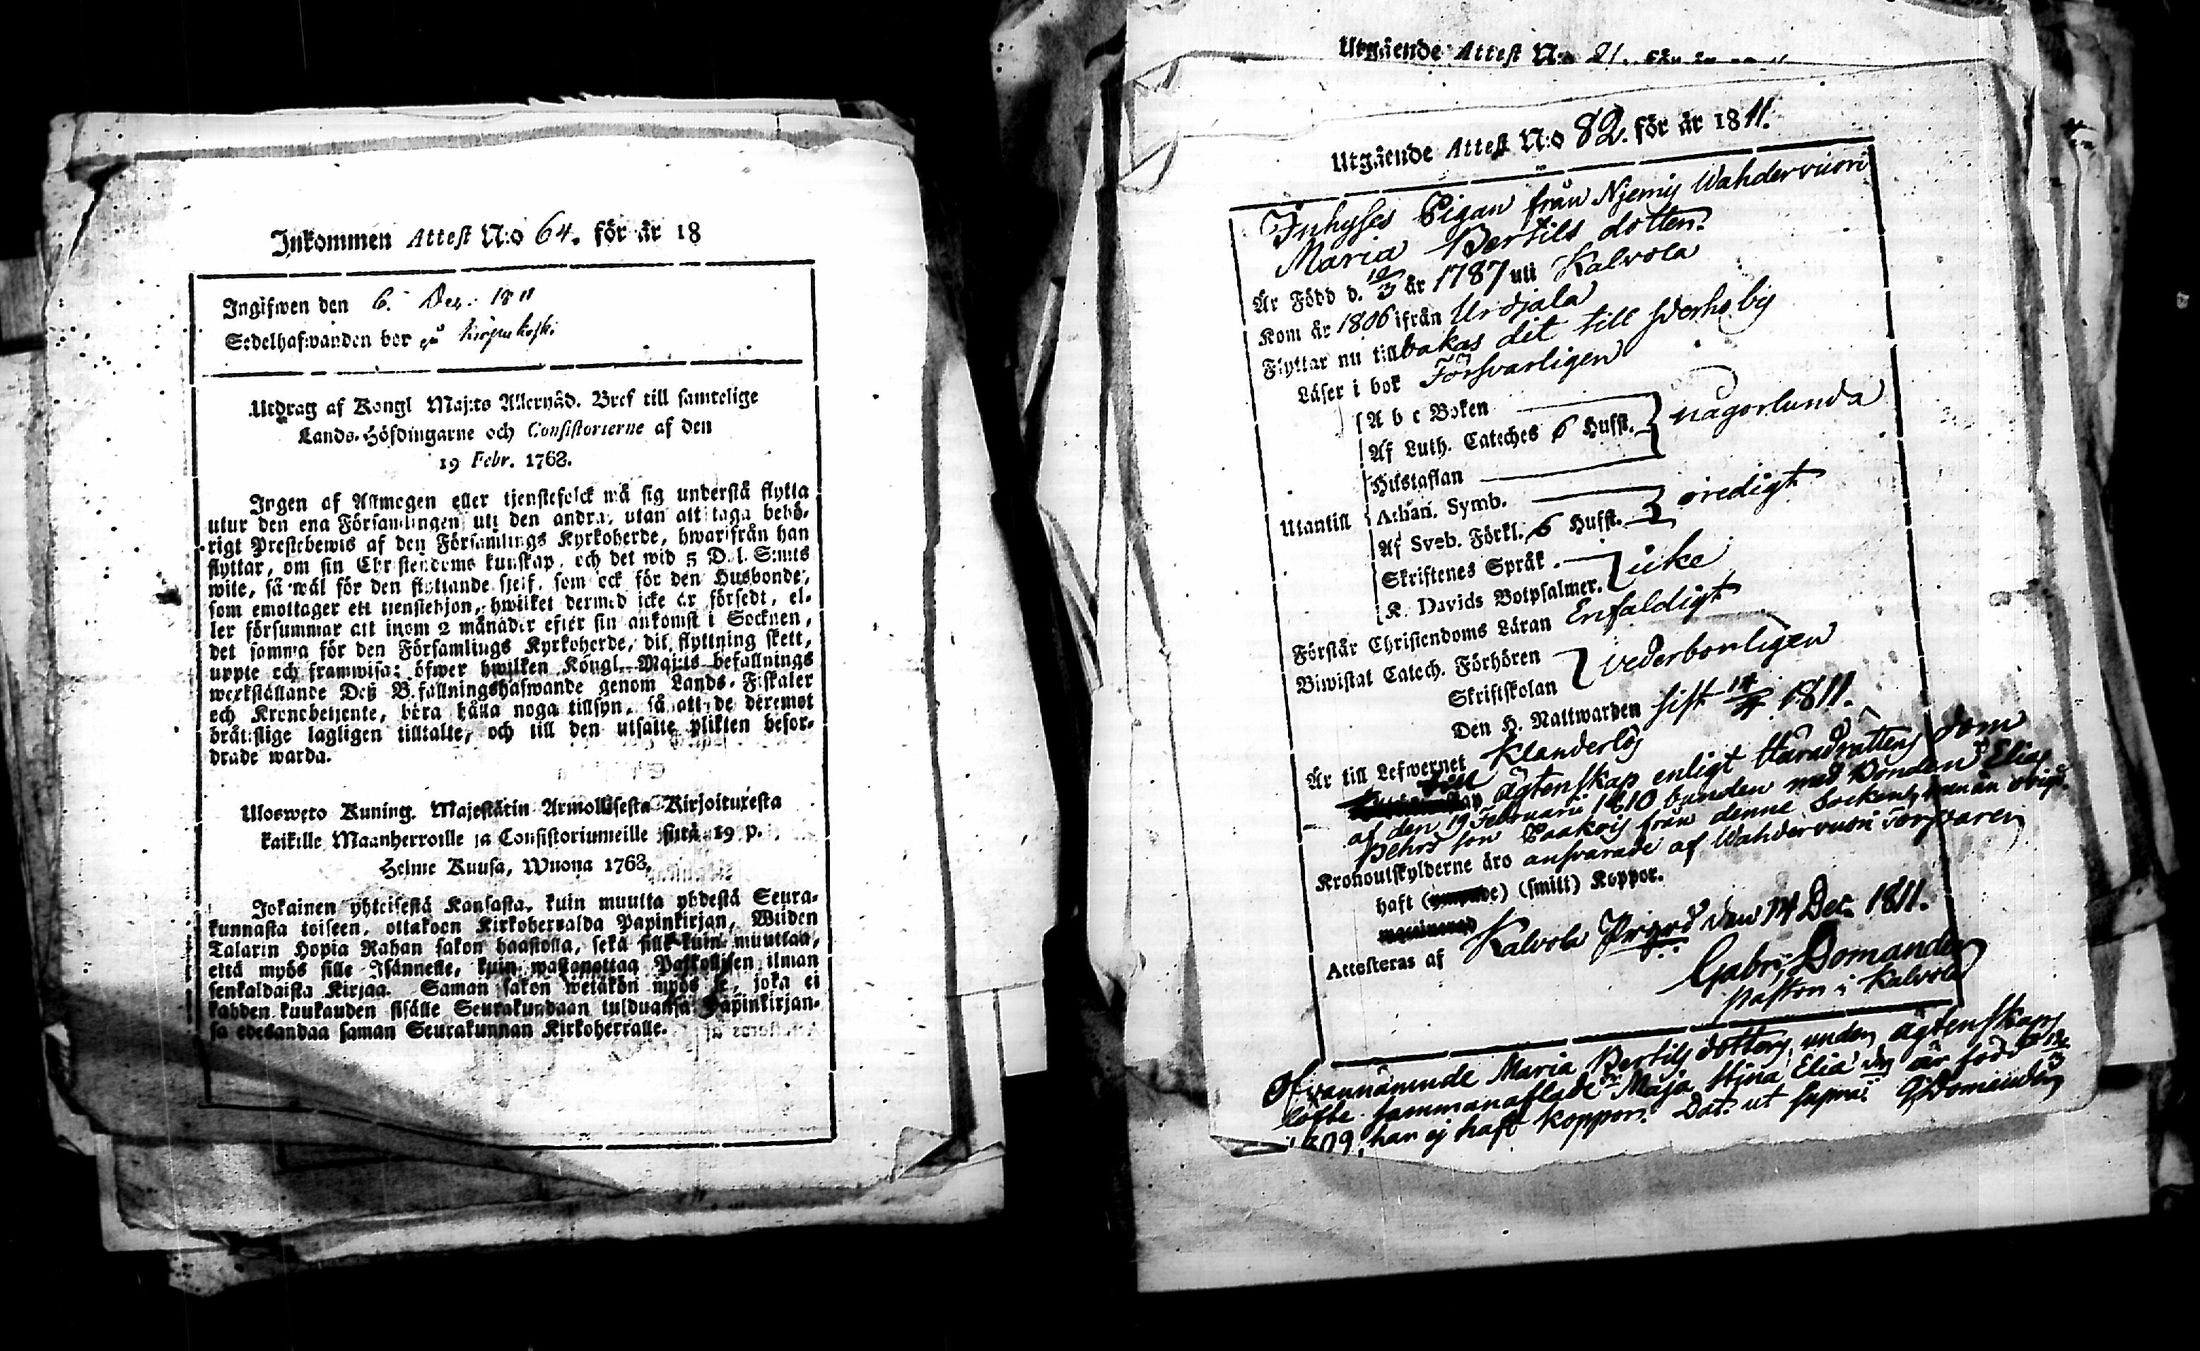 Inkommen Attest N:o 64. för år 18
Ingifwen den 6. Dec. 1811
Sedelhafwanden bor på
Utdrag af Kongl Maj:ts Allernåd. Bref till samtelige
Lands-Höfdingarne och Consistorierne af den
19 Febr. 1768.
Ingen af Allmogen eller tjenstefolck må sig understå flytta
utur den ena Församlingen uti den andra, utan att taga behö-
rigt Prestebewis af den Församlings Kyrkoherde, hwarifrån han
flyttar, om sin Christendoms kunskap, och det wid 5 Dal. S:mts
wite, så wäl för den flyttande sjelf, som ock för den Husbonde,
som emottager ett tienstehjon, hwilket dermed icke är försedt, el-
ler försummar att inom 2 månader efter sin ankomst i Socknen,
det samma för den Församlings Kyrkoherde, dit flyttning skett,
uppte och framwisa; öfwer hwilken Kongl. Maj:ts befallnings
werkställande Deß Befallningshafwande genom Lands-Fiskaler
och Kronobetjente, böra hålla noga tillsyn, så att de deremot
bråtslige lagligen tilltalte, och till den utsatte plikten befor-
drade warda.
Ulosweto Kuning. Majestätin Armollisesta Kirjoituxesta
kaikille Maanherroille ja Consistoriumeille siitä 19 p.
Helme Kuusa, Wuona 1763,
Jokainen yhteisestä Kansasta, kuin muutta yhdestä Seura-
kunnasta toiseen, ottakoon Kirkoherralda Papinkirjan, Wiiden
Talarin Hopia Rahan sakon haastolla, sekä sille kuin muuttaa,
että myös sille Isännelle, kuin wastanottaa Palkollisen ilman
senkaldaista Kirjaa. Saman sakon wetäkön myös se, joka ei
kahden kuukauden sisälle Seurakundaan tulduansa Papinkirjan-
sa edesandaa saman Seurakunnan Kirkoherralle.
Utgående Attest N:o 21. för år
Utgående Attest N:o 82. för år 1811.
Inhyses Pigan från Njemis Wahdervuori
Maria Bertils dotter.
Är Född d. 12/3 år 1787 uti Kalvola
Kom år 1806 ifrån Urdjala
Flyttar nu tillbakas dit till by
Läser i bok Försvarligen
A b c Boken
Af Luth. Cateches 6 Hufst. någorlunda
Hustaflan
Utantill Athan. Symb. oredigt
Af Sveb. Förkl. 6 Hufst.
Skriftenes Språk. icke
K. Davids Botpsalmer.
Förstår Christendoms Läran Enfaldigt
Biwistat Catech. Förhören vederbörligen
Skriftskolan
Den H. Nattwarden sist 1811.
Är till Lefwernet Klanderlös
till ägtenskap enligt Häradsrättens dom
af den 19 Februarii 1810 bunden med Bonden Elias
Pehrs son från denne Socken,
Kronoutskylderne äro ansvarade af Wahdervuori
haft (smitt) Koppor.
Attesteras af Kalvola Prgrd den 14 Dec. 1811.
Gabr. Domander
Pastor i Kalvola
Ofvannämnde Maria Bertils dotters under ägtenskaps
löfte sammanaflade Maja Stina Elia är född
1809, har ej haft koppor. Dat. ut supra G Domander